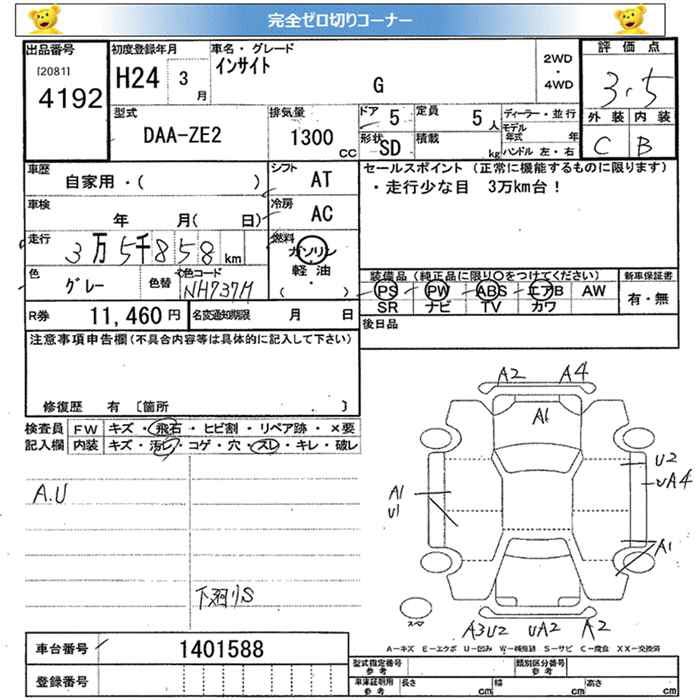 完全ゼロ切りコーナー
出品番号
[2081]
4192
初度登録年月
H24 3 月
車名・グレード
インサイト
G
2WD
・
4WD
評価点
3.5
外装 内装
C B
型式
DAA-ZE2
排気量
1300 CC
ドア 5
定員 5 人
形状 SD
積載 kg
ディーラー・並行
モデル年式 年
ハンドル 左・右
車歴
自家用・( )
シフト AT
車検 年 月( 日)
冷房 AC
走行 3万5千858 km
燃料
ガソリン
軽油
( )
色 グレー
色替
色コード NH737M
R券 11,460円
名変通知期限 月 日
セールスポイント (正常に機能するものに限ります)
・走行少な目 3万km台!
装備品 (純正品に限り○をつけてください)
PS PW ABS エアB AW
SR ナビ TV カワ
新車保証書
有・無
後日品
注意事項申告欄(不具合内容等は具体的に記入して下さい)
修復歴 有 [箇所 ]
検査員記入欄
FW キズ・飛石・ヒビ割・リペア跡・×要
内装 キズ・汚レ・コゲ・穴・スレ・キレ・破レ
A.U
下廻りS
A2 A4
A1
U2
UA4
A1
U1
A1
A3U2 UA2 A2
スペア
A-キズ E-エクボ U-凹み W-補修跡 S-サビ C-腐食 XX-交換済
車台番号 1401588
登録番号
型式指定番号 参考
類別区分番号 参考
車庫証明用 参考
長さ cm 幅 cm 高さ cm